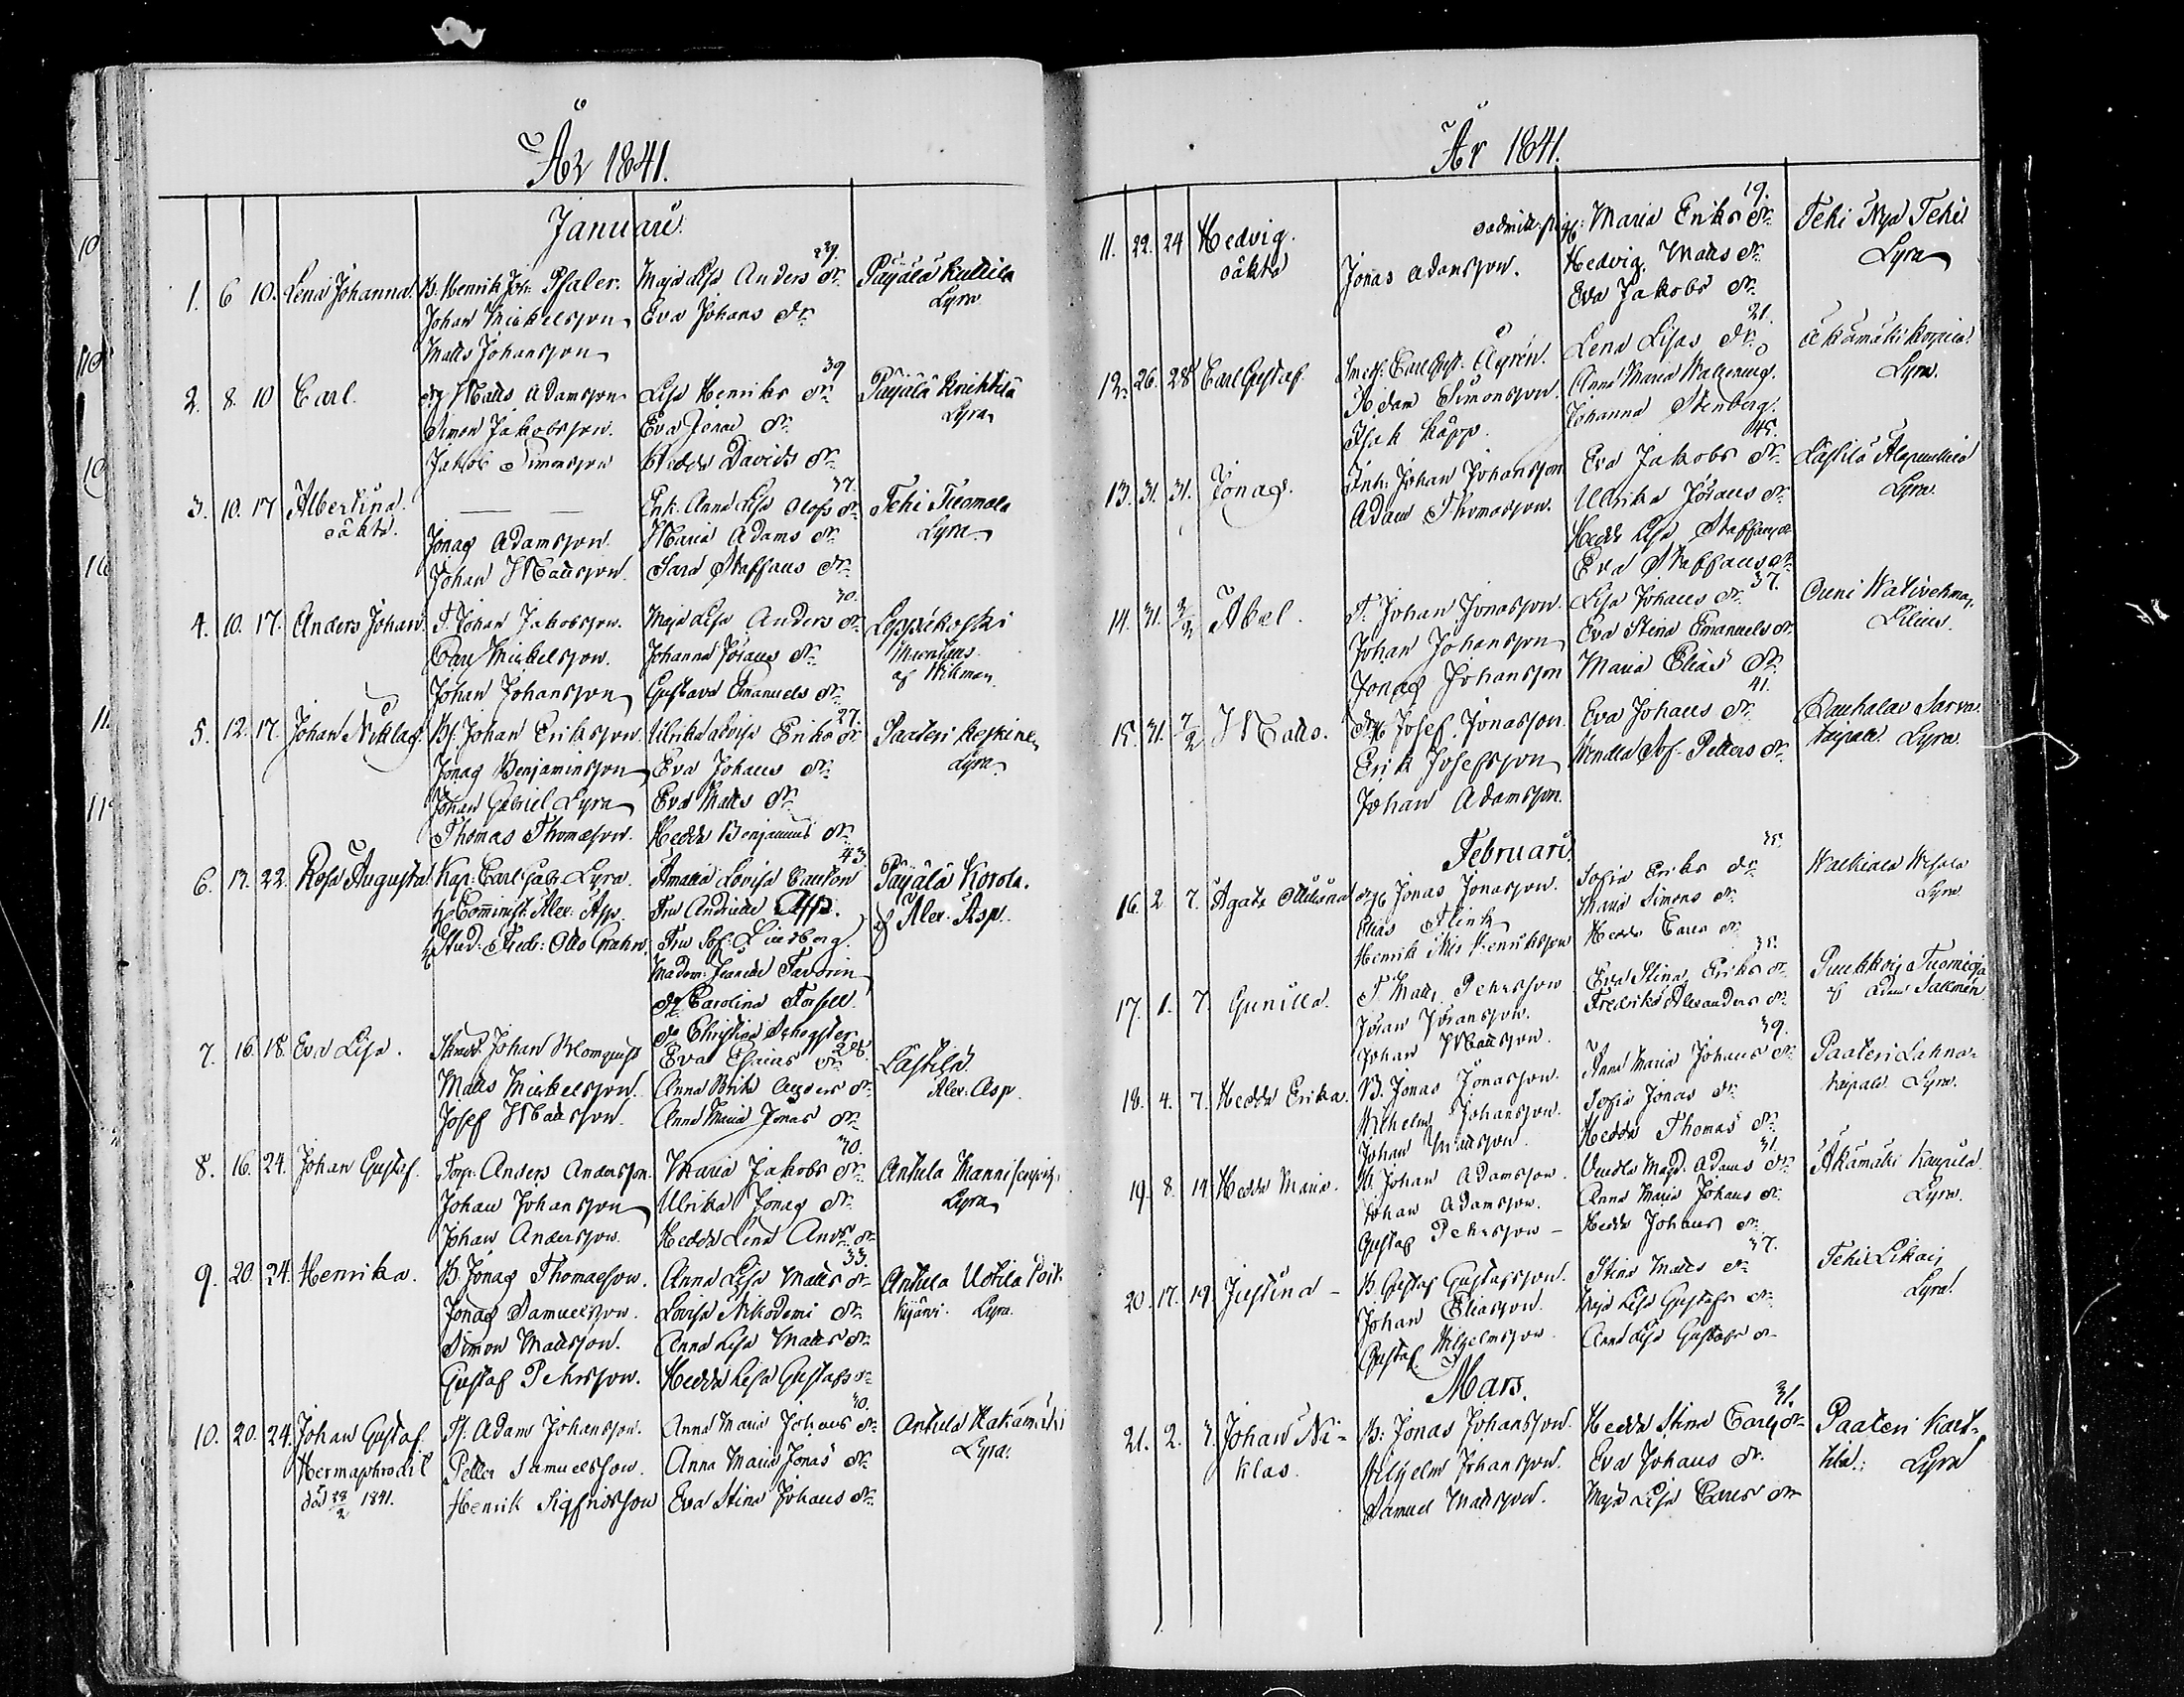 År 1841.
Januari.
1. 6 10. Lena Johanna. B. Henrik Joh: Psaler. Maja Lisa Anders dr. 39. Päijälä Kullila
Johan Mickelsson Eva Johans dr. Lyra
Matts Johansson
2. 8. 10 Carl. Matts Adamsson Lisa Henriks dr. 39 Päijälä Knihtilä
Simon Jakobsson. Eva Jonas dr. Lyra
Jakob Simonsson Hedda Davids dr.
3. 10. 17 Albertina. — — Enk. Anna Lisa Olofs dr. 37. Tehi Tuomala
oäkta. Jonas Adamsson. Maria Adams dr. Lyra
Johan Mattsson. Sara Staffans dr.
4. 10. 17. Anders Johan. T. Johan Jakobsson. Maja Lisa Anders dr. 30. Leppäkoski
Carl Mickelsson. Johanna Görans dr.
Johan Johansson Gustava Emanuels dr. af Wikman
5. 12. 17. Johan Niklas. Johan Eriksson. Ulrika Lovisa Eriks dr. 27. Paateri Keskinen
Jonas Benjaminsson Eva Johans dr. Lyra
Johan Gabriel Lyra Eva Matts dr.
Thomas Thomasson. Hedda Benjamins dr.
6. 13. 22. Rosa Augusta. Kap: Carl Gabr. Lyra. Amalia Lovisa 43 Päijälä Korola.
Comminist. Alex. Asp. Fru Andriette Asp. af Alex. Asp.
Stud: Fredr: Otto Grahn. Fru Sof:
Madam
Carolina Forsell.
Christina
7. 16. 18. Eva Lisa. Johan Blomquist Eva Esaias dr. 28. Lästilä
Matts Mickelsson. Anna Brita Anders dr. Alex. Asp.
Josef Mattsson. Anna Maria Jonas dr.
8. 16. 24. Johan Gustaf. Torp. Anders Andersson. Maria Jakobs dr. 30. Antula
Johan Johansson Ulrika Jonas dr. Lyra
Johan Andersson. Hedda Lena Anders dr.
9. 20. 24. Henrika. B. Jonas Thomasson. Anna Lisa Matts dr. 33. Antula Uotila
Jonas Samuelsson. Lovisa Nikodemi dr. Lyra.
Simon Mattsson. Anna Lisa Matts dr.
Gustaf Pehrsson. Hedda Lisa Gustafs dr.
10. 20. 24. Johan Gustaf. Adam Johansson. Anna Maria Johans dr. 30. Antula Hakamäki
Hermaphrodit Petter Samuelsson. Anna Maria Jonas dr. Lyra.
död 28/2 1841. Henrik Sigfridsson Eva Stina Johans dr.
År 1841.
11. 22. 24 Hedvig. Maria Eriks dr. 19. Tehi Nya Tehi
oäkta Jonas Adamsson. Hedvig Matts dr. Lyra
Eva Jakobs dr.
12. 26. 28 Carl Gustaf. Smed: Carl Gust. Ågrén. Lena Lisas dr. 21. Äkämäki
Adam Simonsson. Anna Maria Lyra.
Isak Käpp. Johanna Stenberg.
13. 31. 31. Jonas. Inh: Johan Johansson Eva Jakobs dr. 45. Lästilä
Adam Thomasson. Ulrika Görans dr. Lyra.
Hedda Lisa Staffans dr.
Eva Staffans dr.
14. 31. 3/2 Abel. T. Johan Jonasson. Lisa Johans dr. 37. Ouni
Johan Johansson Eva Stina Emanuels dr. Lilius.
Jonas Johansson Maria Elias dr.
15. 31. 7/2 Matts. Josef Jonasson. Eva Johans dr. 41. Rauhala
Erik Josefsson Wendla Sof. Petters dr. Lyra.
Johan Adamsson.
Februari.
16. 2 7. Agata Jonas Jonasson. Sofia Eriks dr. 35. Walkiala
Elias Flink Maria Simons dr. Lyra
Henrik Henriksson Hedda Carls dr.
17. 1. 7. Gunilla. T. Matts Pehrsson Eva Stina Eriks dr. 35. Puukkois Tuomioja
Göran Göransson. Fredrika Alexanders dr. af Adam Tallmén
Johan Mattsson.
18. 4. 7. Hedda Erika. B. Jonas Jonasson. Anna Maria Johans dr. 39. Paateri Lahna-
Wilhelm Johansson. Sofia Jonas dr. Lyra.
Johan Mattsson. Hedda Thomas dr.
19. 8. 14. Hedda Maria. B. Johan Adamsson. Vendla Magd. Adams dr. 31. Äkämäki
Johan Adamsson. Anna Maria Johans dr. Lyra.
Gustaf Pehrsson – Hedda Johans dr.
20. 17. 19. Justina – B. Gustaf Gustafsson. Stina Matts dr. 37. Tehi
Johan Eliasson. Maja Lisa Gustafs dr. Lyra.
Gustaf Wilhelmsson. Anna Lisa Gustafs dr.
Mars.
21. 2. 7. Johan Ni- B. Jonas Johansson. Hedda Stina Carls dr. 31. Paateri
klas. Wilhelm Johansson. Eva Johans dr. Lyra
Samuel Mattsson. Maja Lisa Carls dr.